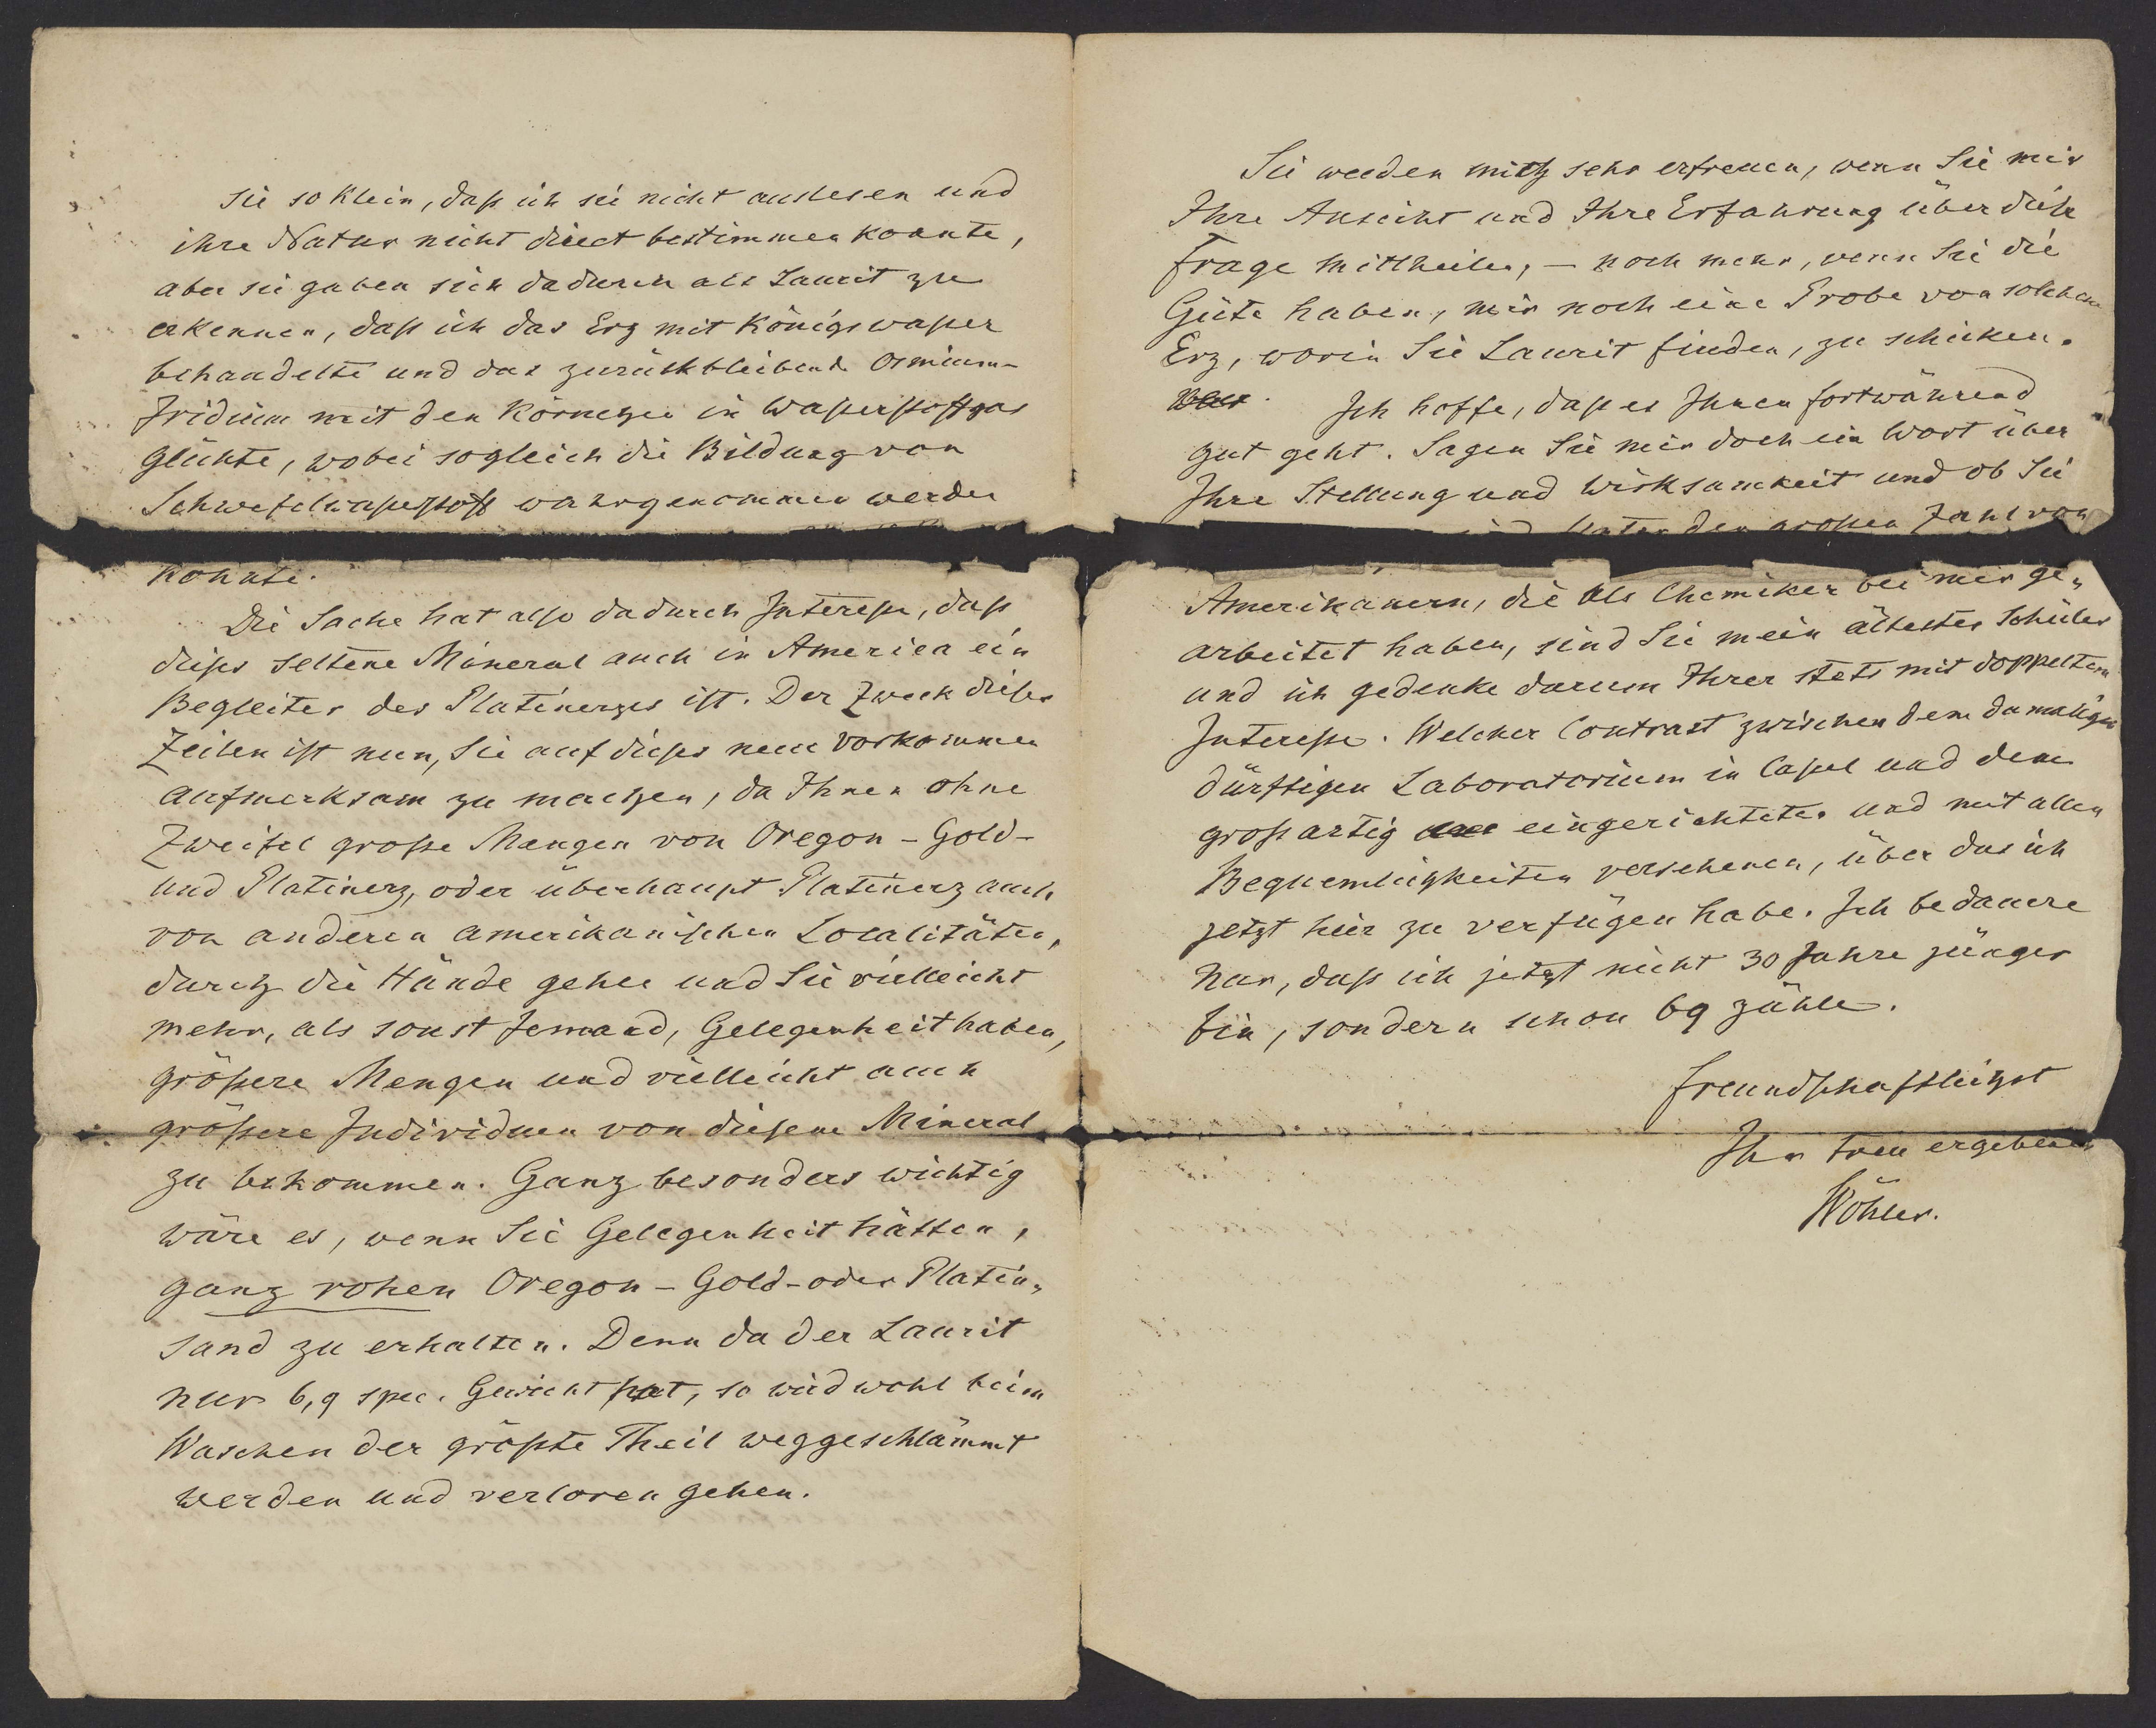 sie so klein, daß ich sie nicht auslesen und
ihre Natur nicht direct bestimmen konnte,
aber sie gaben sich dadurch als Laurit zu
erkennen, daß ich das Erz mit Königswaßer
behandelte und das zurückbleibende Osmium-
Iridium mit den Körnchen in Waßerstoffgas
glühte, wobei sogleich die Bildung von
Schwefelwaßerstoff wahrgenommen werden
konnte.
Die Sache hat also dadurch Intereße, daß
dieses seltene Mineral auch in America ein
Begleiter des Platinerzes ist. Der Zweck dieser
Zeilen ist nun, Sie auf dieses neue Vorkommen
aufmerksam zu machen, da Ihnen ohne
Zweifel große Mengen von Oregon-Gold-
und Platinerz, oder überhaupt Platinerz auch
von anderen amerikanischen Localitäten,
durch die Hände gehen und Sie vielleicht
mehr, als sonst Jemand, Gelegenheit haben,
größere Mengen und vielleicht auch
größere Individuen von diesem Mineral
zu bekommen. Ganz besonders wichtig
wäre es, wenn Sie Gelegenheit hätten,
ganz rohen Oregon-Gold- oder Platin-
sand zu erhalten. Denn da der Laurit
nur 6,9 spec. Gewicht hat, so wird wohl beim
Waschen der größte Theil weggeschlämmt
werden und verloren gehen.
Sie werden mich sehr erfreuen, wenn Sie mir
Ihre Ansicht und Ihre Erfahrung über diese
Frage mittheilen, – noch mehr, wenn Sie die
Güte haben, mir noch eine Probe von solchem
Erz, worin Sie Laurit finden, zu schicken.
Ich hoffe, daß es Ihnen fortwährend
gut geht. Sagen Sie mir doch ein Wort über
Ihre Stellung und Wirksamkeit und ob Sie
Unter den großen Zahl von
Amerikanern, die als Chemiker bei mir ge-
arbeitet haben, sind Sie mein ältester Schüler
und ich gedenke darum Ihrer stets mit doppeltem
Intereße. Welcher Contrast zwischen dem damaligen
dürftigen Laboratorium in Caßel und dem
großartig eingerichteten und mit allen
Bequemlichkeiten versehenen, über das ich
jetzt hier zu verfügen habe. Ich bedauere
nur, daß ich jetzt nicht 30 Jahre jünger
bin, sondern schon 69 zähle.
freundschaftlichst
Ihr treu ergebener
Wöhler.